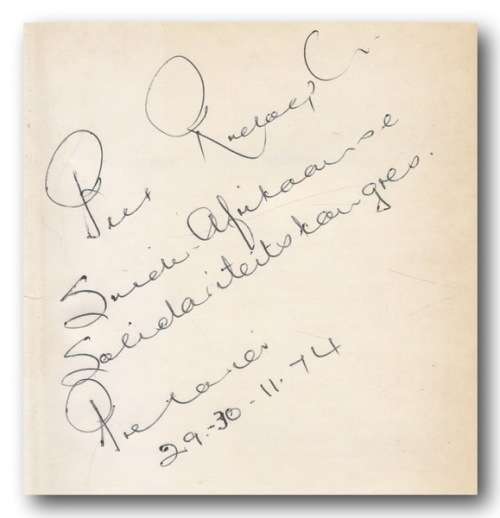 Piet Rudolph
Suid-Afrikaanse
Solidariteitskongres.
Pretoria
29-30-11-74